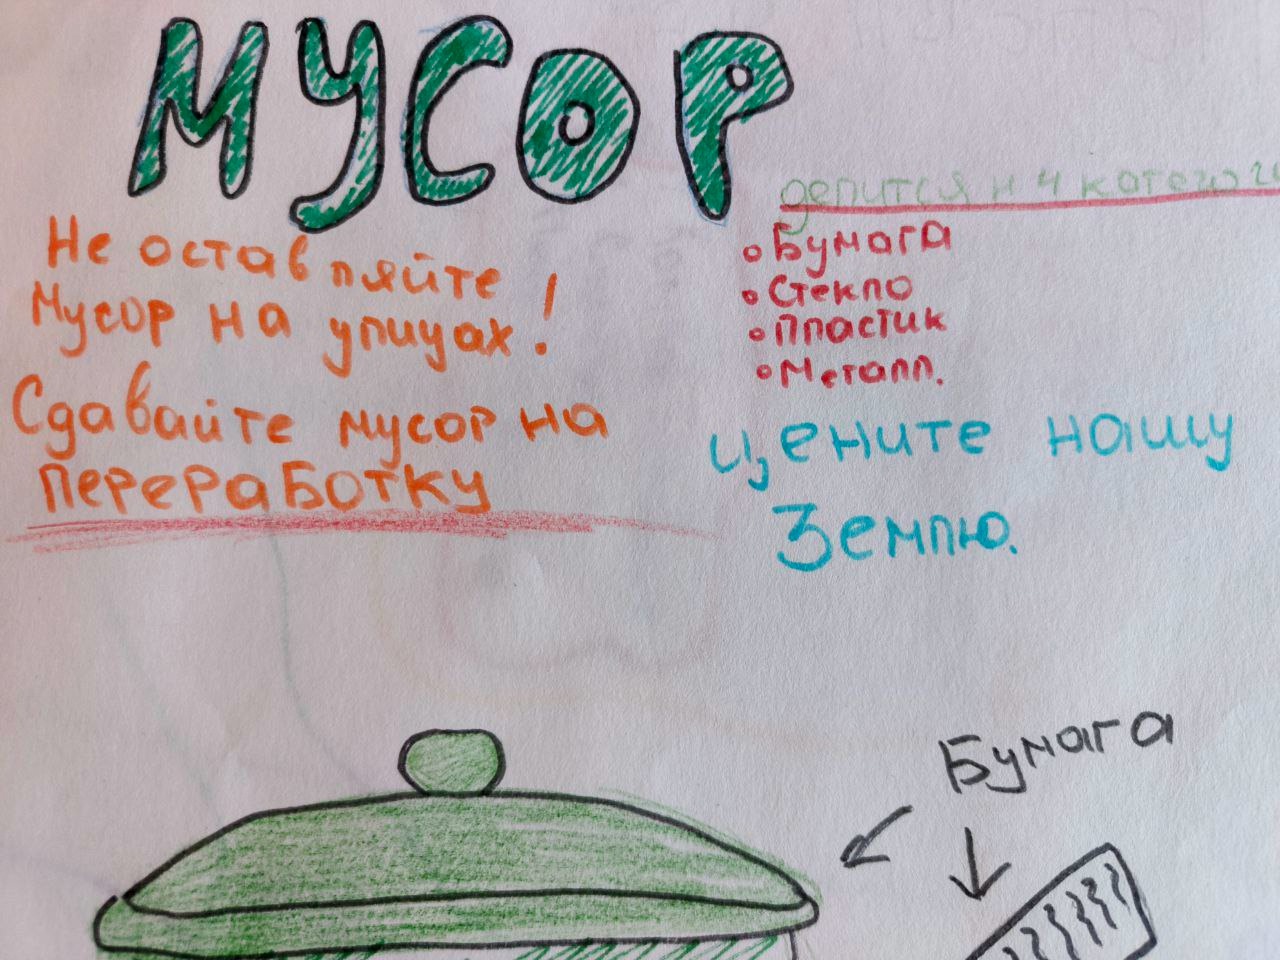 МУСОР
делится н 4 категоги
Не оставляйте
Мусор на улицах!
Сдавайте мусор на
переработку
• Бумага
• Стекло
• Пластик
• Металл.
Цените нашу
Землю.
Бумага